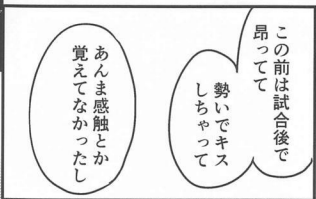 この前は試合後で
昂ってて
勢いでキス
しちゃって
あんま感触とか
覚えてなかったし